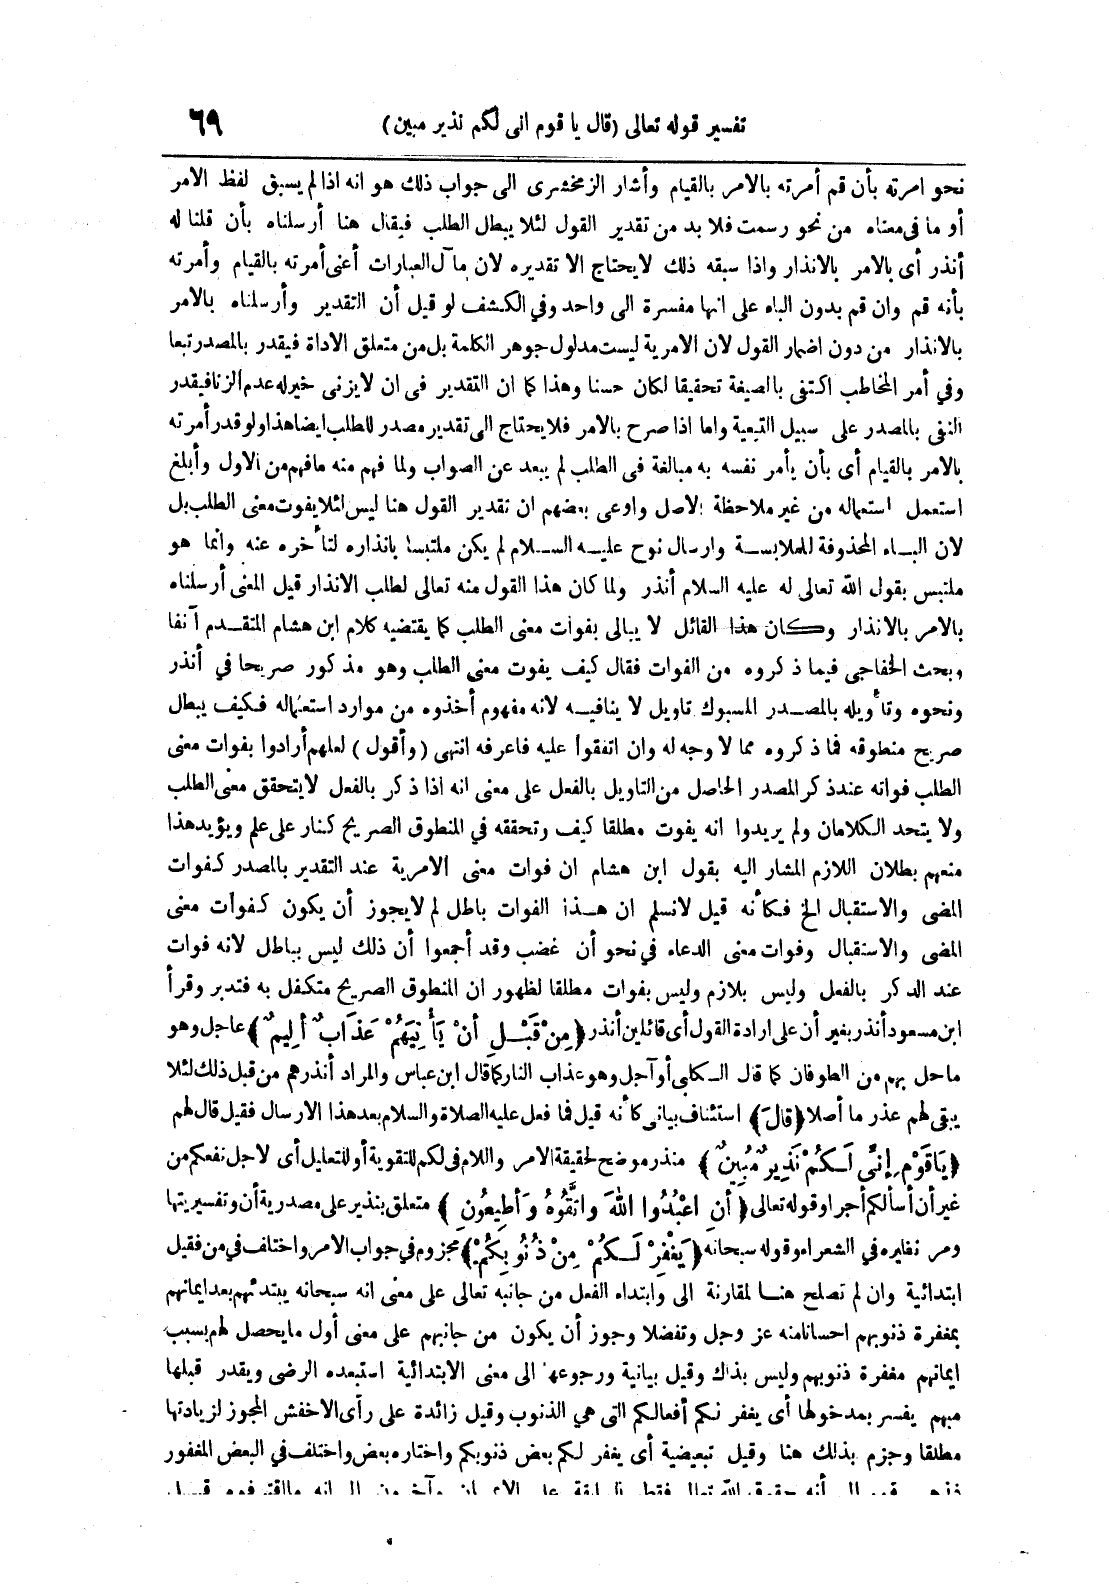 تفسير قوله تعالى (قال يا قوم انى لكم نذير مبين) ٦٩
نحو امرته بأن قم أمرته بالامر بالقيام وأشار الزمخشرى الى جواب ذلك هو انه اذا لم يسبق لفظ الامر
أو ما فى معناه من نحو رسمت فلا بد من تقدير القول لئلا يبطل الطلب فيقال هنا أرسلناه بأن قلنا له
أنذر أى بالامر بالانذار واذا سبقه ذلك لايحتاج الا تقديره لان مآل العبارات أعنى أمرته بالقيام وأمرته
بأنه قم وان قم بدون الباء على انها مفسرة الى واحد وفي الكشف لو قيل أن التقدير وأرسلناه بالامر
بالانذار من دون اضمار القول لان الامرية ليست مدلول جوهر الكلمة بل من متعلق الاداة فيقدر بالمصدر تبعا
وفي أمر المخاطب اكتفى بالصيغة تحقيقا لكان حسنا وهذا كما ان التقدير فى ان لايزنى خير له عدم الزنا فيقدر
النفى بالمصدر على سبيل التبعية واما اذا صرح بالامر فلا يحتاج الى تقدير مصدر للطلب ايضا هذا ولو قدر أمرته
بالامر بالقيام أى بأن يأمر نفسه به مبالغة فى الطلب لم يبعد عن الصواب ولما فهم منه مافهم من الاول وأبلغ
استعمل استعماله من غير ملاحظة الاصل وادعى بعضهم ان تقدير القول هنا ليس لئلا يفوت معنى الطلب بل
لان البـاء المحذوفة للملابسـة وارسال نوح عليـه السـلام لم يكن ملتبسا بانذاره لتأخره عنه وانما هو
ملتبس بقول الله تعالى له عليه السلام أنذر ولما كان هذا القول منه تعالى لطلب الانذار قيل المعنى أرسلناه
بالامر بالانذار وكان هذا القائل لا يبالى بفوات معنى الطلب كما يقتضيه كلام ابن هشام المتقـدم آنفا
وبحث الخفاجى فيما ذكروه من الفوات فقال كيف يفوت معنى الطلب وهو مذكور صريحا في أنذر
ونحوه وتأويله بالمصـدر المسبوك تاويل لا ينافيـه لانه مفهوم أخذوه من موارد استعماله فكيف يبطل
صريح منطوقه فما ذكروه مما لا وجه له وان اتفقوا عليه فاعرفه انتهى (وأقول) لعلهم أرادوا بفوات معنى
الطلب فواته عند ذكر المصدر الحاصل من التاويل بالفعل على معنى انه اذا ذكر بالفعل لايتحقق معنى الطلب
ولا يتحد الكلامان ولم يريدوا انه يفوت مطلقا كيف وتحققه في المنطوق الصريح كنار على علم ويؤيد هذا
منعهم بطلان اللازم المشار اليه بقول ابن هشام ان فوات معنى الامرية عند التقدير بالمصدر كفوات
المضى والاستقبال الخ فكأنه قيل لانسلم ان هـذا الفوات باطل لم لايجوز أن يكون كفوات معنى
المضى والاستقبال وفوات معنى الدعاء في نحو أن غضب وقد أجمعوا أن ذلك ليس بباطل لانه فوات
عند الذكر بالفعل وليس بلازم وليس بفوات مطلقا لظهور ان المنطوق الصريح متكفل به فتدبر وقرأ
ابن مسعود أنذر بغير أن على ارادة القول أى قائلين أنذر ﴿مِنْ قَبْـلِ أَنْ يَأْتِيَهُمْ عَذَابٌ أَلِيمٌ﴾ عاجل وهو
ماحل بهم من الطوفان كما قال الكلبى أو آجل وهو عذاب النار كما قال ابن عباس والمراد أنذرهم من قبل ذلك لئلا
يبقى لهم عذر ما أصلا ﴿قَالَ﴾ استئناف بيانى كأنه قيل فما فعل عليه الصلاة والسلام بعد هذا الارسال فقيل قال لهم
﴿يَاقَوْمِ إِنِّى لَـكُمْ نَذِيرٌ مُبِينٌ﴾ منذر موضح لحقيقة الامر واللام فى لكم للتقوية أو للتعليل أى لاجل نفعكم من
غير أن أسألكم أجرا وقوله تعالى ﴿أَنِ اعْبُدُوا اللَّهَ وَاتَّقُوهُ وَأَطِيعُونِ﴾ متعلق بنذير على مصدرية أن وتفسيريتها
ومر نظيره في الشعراء وقوله سبحانه ﴿يَغْفِرْ لَـكُمْ مِنْ ذُنُوبِكُمْ﴾ مجزوم في جواب الامر واختلف في من فقيل
ابتدائية وان لم تصلح هنـا لمقارنة الى وابتداء الفعل من جانبه تعالى على معنى انه سبحانه يبتدئهم بعد ايمانهم
بمغفرة ذنوبهم احسانا منه عز وجل وتفضلا وجوز أن يكون من جانبهم على معنى أول مايحصل لهم بسبب
ايمانهم مغفرة ذنوبهم وليس بذاك وقيل بيانية ورجوعها الى معنى الابتدائية استبعده الرضى ويقدر قبلها
مبهم يفسر بمدخولها أى يغفر لكم أفعالكم التى هي الذنوب وقيل زائدة على رأى الاخفش المجوز لزيادتها
مطلقا وجزم بذلك هنا وقيل تبعيضية أى يغفر لكم بعض ذنوبكم واختاره بعض واختلف في البعض المغفور
فذهب قوم الى أنه حقوق الله تعالى فقط السابقة على الايمان وآخرون الى انه مااقترفوه قبـل